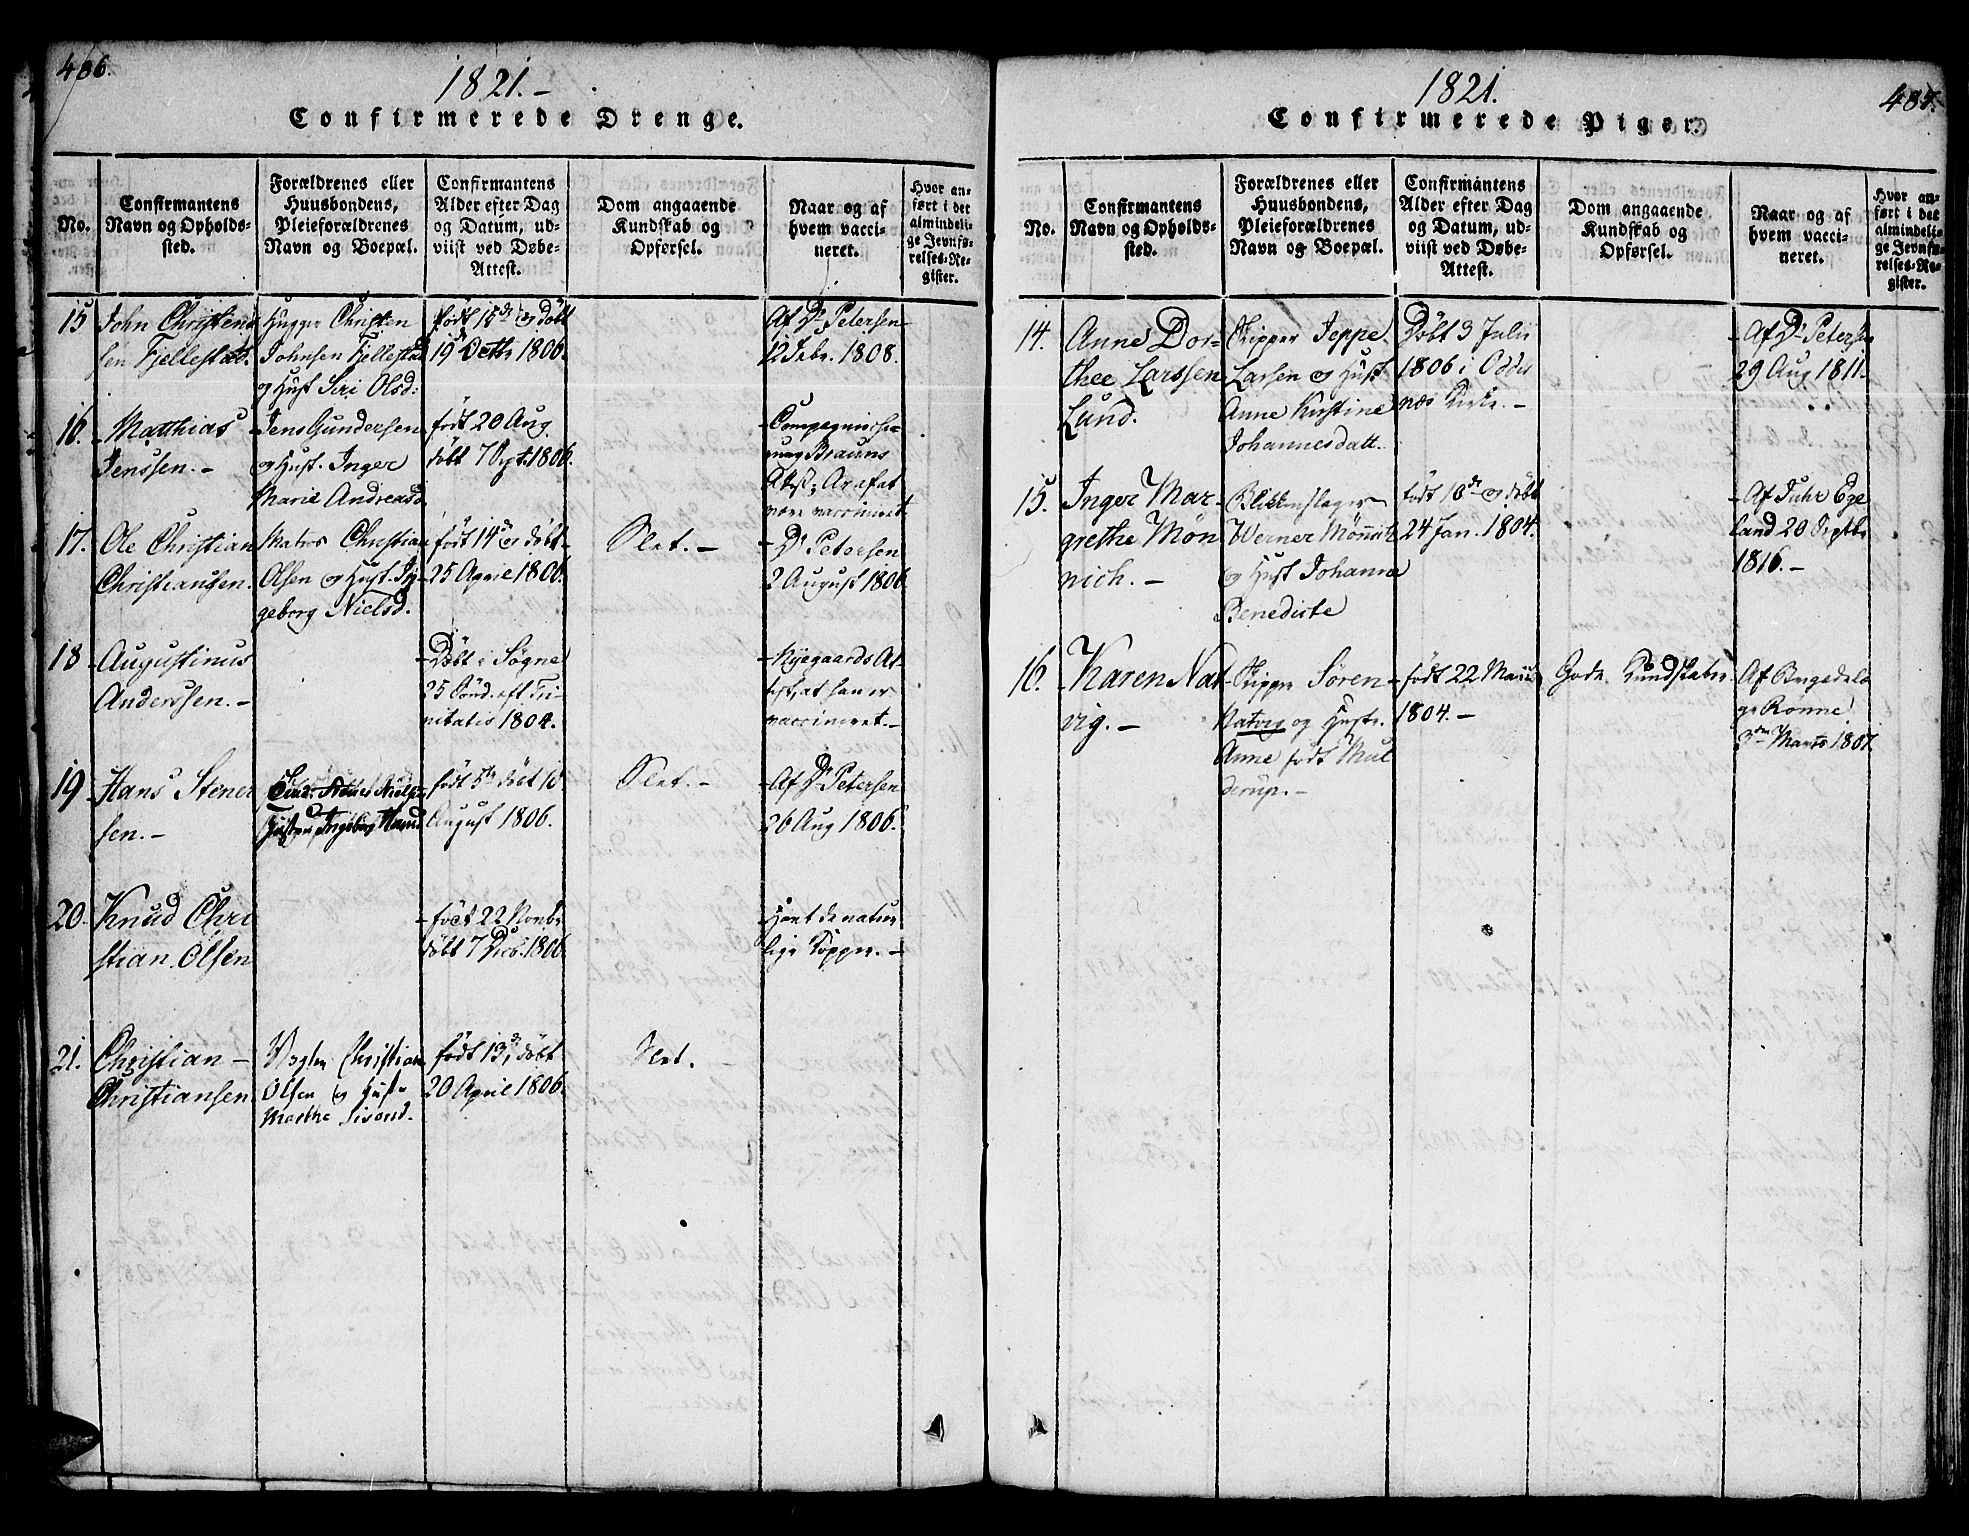 486.
1821.-
Confirmerede Drenge.
No.
Confirmantens
Navn og Opholds-
sted.
Forældrenes eller
Huusbondens,
Pleieforældrenes
Navn og Boepæl.
Confirmantens
Alder efter Dag
og Datum, ud-
viist ved Døbe-
Attest.
Dom angaaende
Kundskab og
Opførsel.
Naar og af
hvem vacci-
neret.
Hvor an-
ført i det
almindeli-
ge Jevnfø-
relses-Re-
gister.
15
John Christen
sen Fjellestad.
Christen
Johnsen Fjellestad
og Hust Siri Olsd:
født 18de og døbt
19 Octbr 1806.
Af Dr Petersen
12 Febr. 1808.
16.
Matthias
Jenssen.-
Jens Gundersen
og Hust. Inger
Marie Andreasd.
født 20 Aug
døbt 7 Sept. 1806.
Brauns
vaccineret.
17.
Ole Christian
Christiansen.
Matros Christian
Olsen og Hust. In-
geborg Nielsd.
født 14de og døbt
25 April 1806.
Slet.-
Dr Petersen
2 August 1806
18
Augustinus
Anderssen.-
Døbt i Søgne
25 Sønd. eft. Tri-
nitatis 1804.
Nyegaards At-
test, at han er
vaccineret.-
19
Hans Stener
sen.-
født 5te døbt 10
August 1806.
Slet.-
Af Dr Petersen
26 Aug 1806.
20.
Knud Chri
stian Olsen
født 22 Novbr
døbt 7 Decb. 1806
Havt de natur
lige Kopper.-
21.
Christian-
Christiansen.
Christian
Olsen og Hust
Marthe Sivertsd.
født 13de, døbt
20 April 1806.
Slet.
1821.
487.
Confirmerede Piger.
No.
Confirmantens
Navn og Opholds-
sted.
Forældrenes eller
Huusbondens,
Pleieforældrenes
Navn og Boepæl.
Confirmantens
Alder efter Dag
og Datum, ud-
viist ved Døbe-
Attest.
Dom angaaende
Kundskab og
Opførsel.
Naar og af
hvem vacci-
neret.
Hvor an-
ført i det
almindeli-
ge Jevnfø-
relses-Re-
gister.
14.
Anne Dor-
thee Larssen
Lund.
Skipper Jeppe
Larsen og Hust
Anne Kirstine
Johannesdatt.
Døbt 3 Julii
1806 i Odder
næs Kirke.-
Af Dr Petersen
29 Aug 1811.
15.
Inger Mar-
grethe Møn
nich.-
Blikkenslager
Werner Mønnich
og Hust Johanna
Benedicte
født 10de og døbt
24 Jan. 1804.
Af Ege
land 20 Septbr
1816.-
16.
Karen Nat
vig.-
Skipper Søren
Natvig og Hustr.
Anne født Mul
derup.-
født 22 Martii
1804.-
Gode Kundskaber
Af
Rønne
3die Marts 1807.